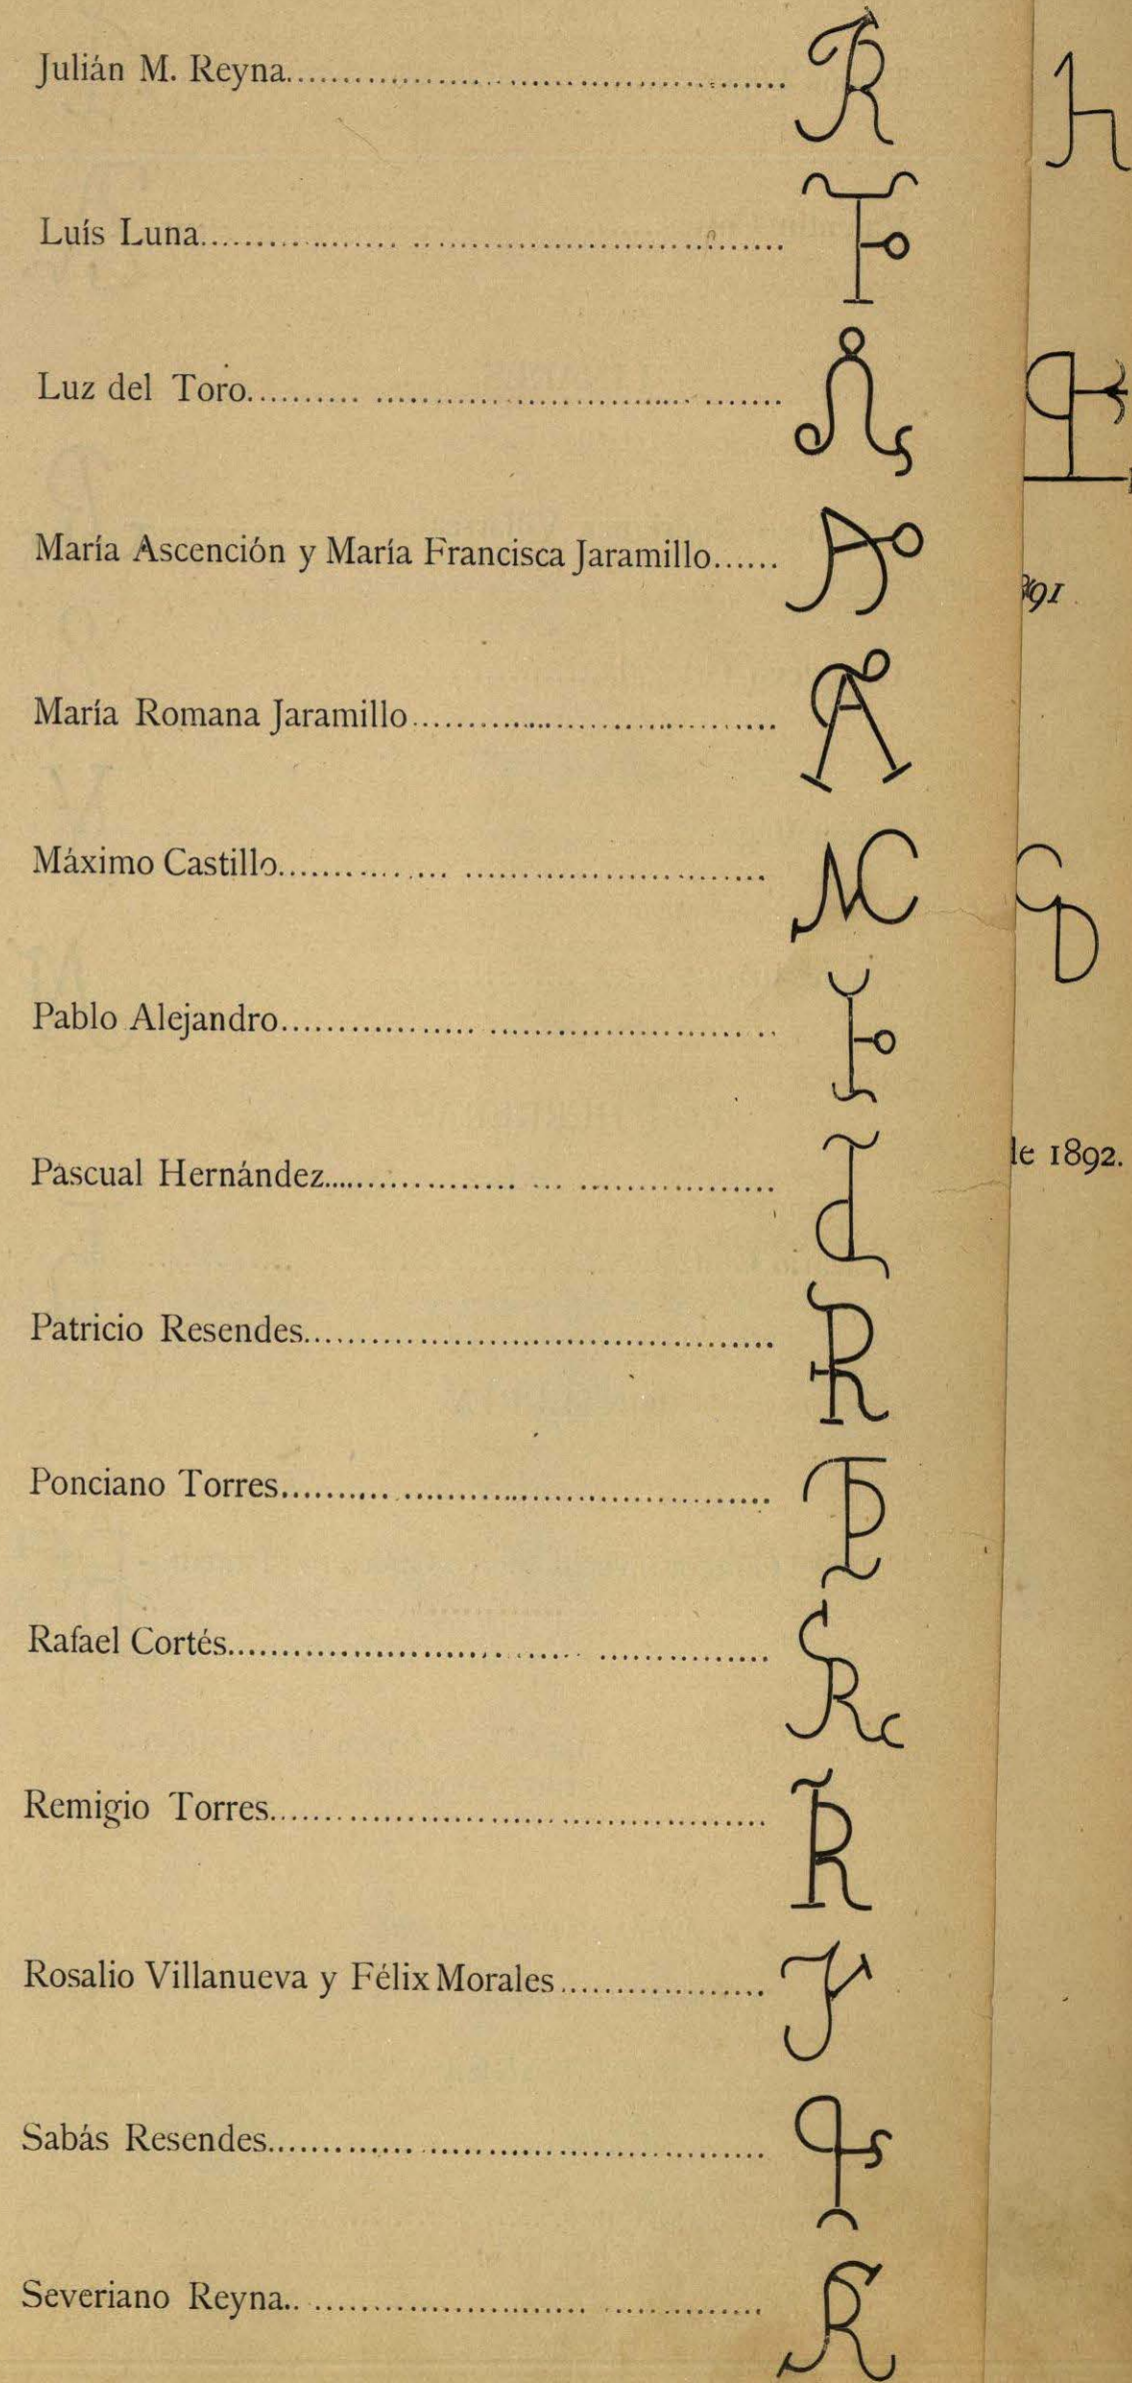 Julián M. Reyna
Luís Luna
Luz del Toro
María Ascención y María Francisca Jaramillo
María Romana Jaramillo
Máximo Castillo
Pablo Alejandro
Pascual Hernández
Patricio Resendes
Ponciano Torres
Rafael Cortés
Remigio Torres
Rosalio Villanueva y Félix Morales
Sabás Resendes
Severiano Reyna
91
le 1892.